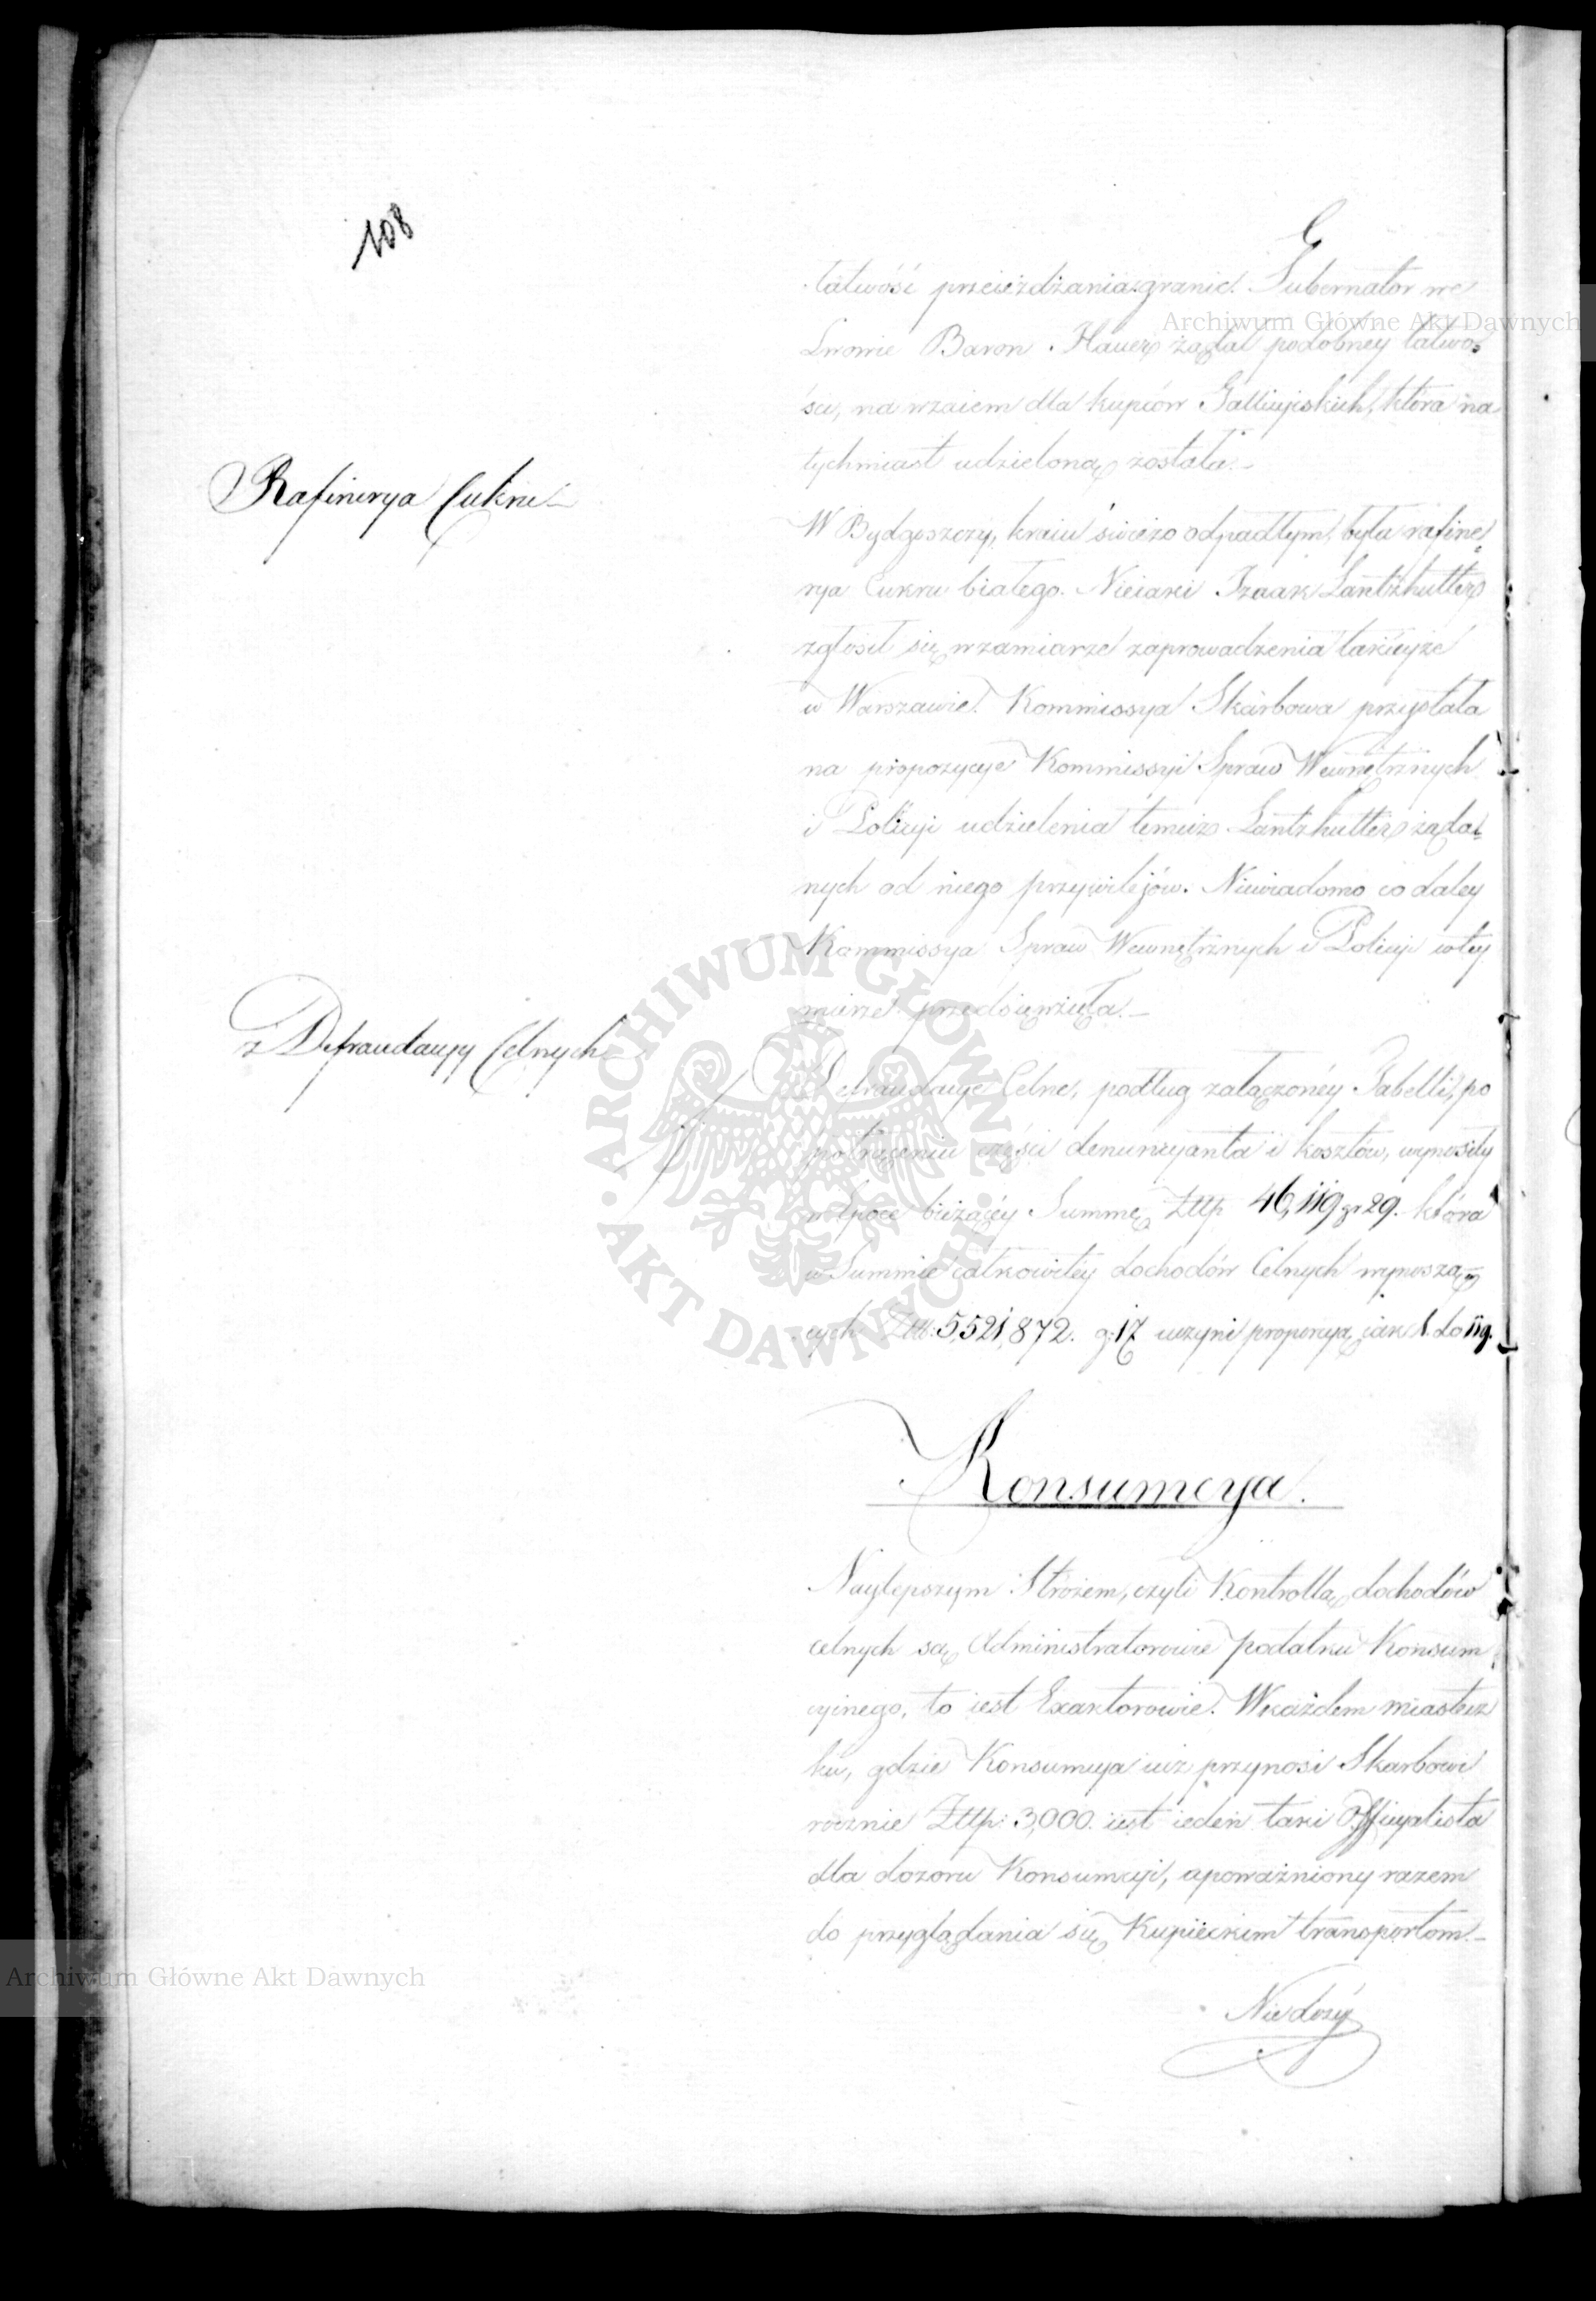 108
łatwość przeieżdżania granic. Gubernator we
Lwowie Baron Hauer żądał podobney łatwo=
ści, na wzaiem dla kupców Gallicyjskich, która na=
tychmiast udzieloną została.–
Rafinerya Cukru–
W Bydgoszczy, kraiu świeżo odpadłym, była rafine=
rya Cukru białego. Nieiaki Izaak Lantzhutter
zgłosił się w zamiarze zaprowadzenia takieyże
w Warszawie. Kommissya Skarbowa przystała
na propozycye Kommissyi Spraw Wewnętrznych
i Policyi udzielenia temuż Lantzhutter żąda=
nych od niego przywilejów. Niewiadomo co daley
Kommissya Spraw Wewnętrznych i Policyi w tey
mierze przedsięwzięła.–
z Defraudacyy Celnych
Defraudacye Celne, podług załączoney Tabelli, po
potrąceniu części denuncyanta i kosztów, wynosiły
w Epoce bieżącey Summę Złłp 46,119 gr 29. która
w Summie całkowitey dochodów Celnych wynoszą=
cych Złł: 5,521,872. g: 17 uczyni proporcyą jak 1. do 119.
Konsumcya.
Naylepszym Stróżem, czyli Kontrollą dochodów
celnych są Administratorowie podatku Konsum=
cyinego, to iest Exaktorowie. W każdem miastecz
ku, gdzie Konsumcya iuż przynosi Skarbowi
rocznie Złłp: 3,000. iest ieden taki Officyalista
dla dozoru Konsumcyi, upoważniony razem
do przyglądania się Kupieckim transportom.–
Nie dosyć
Archiwum Główne Akt Dawnych
ARCHIWUM GŁÓWNE · AKT DAWNYCH ·
Archiwum Główne Akt Dawnych